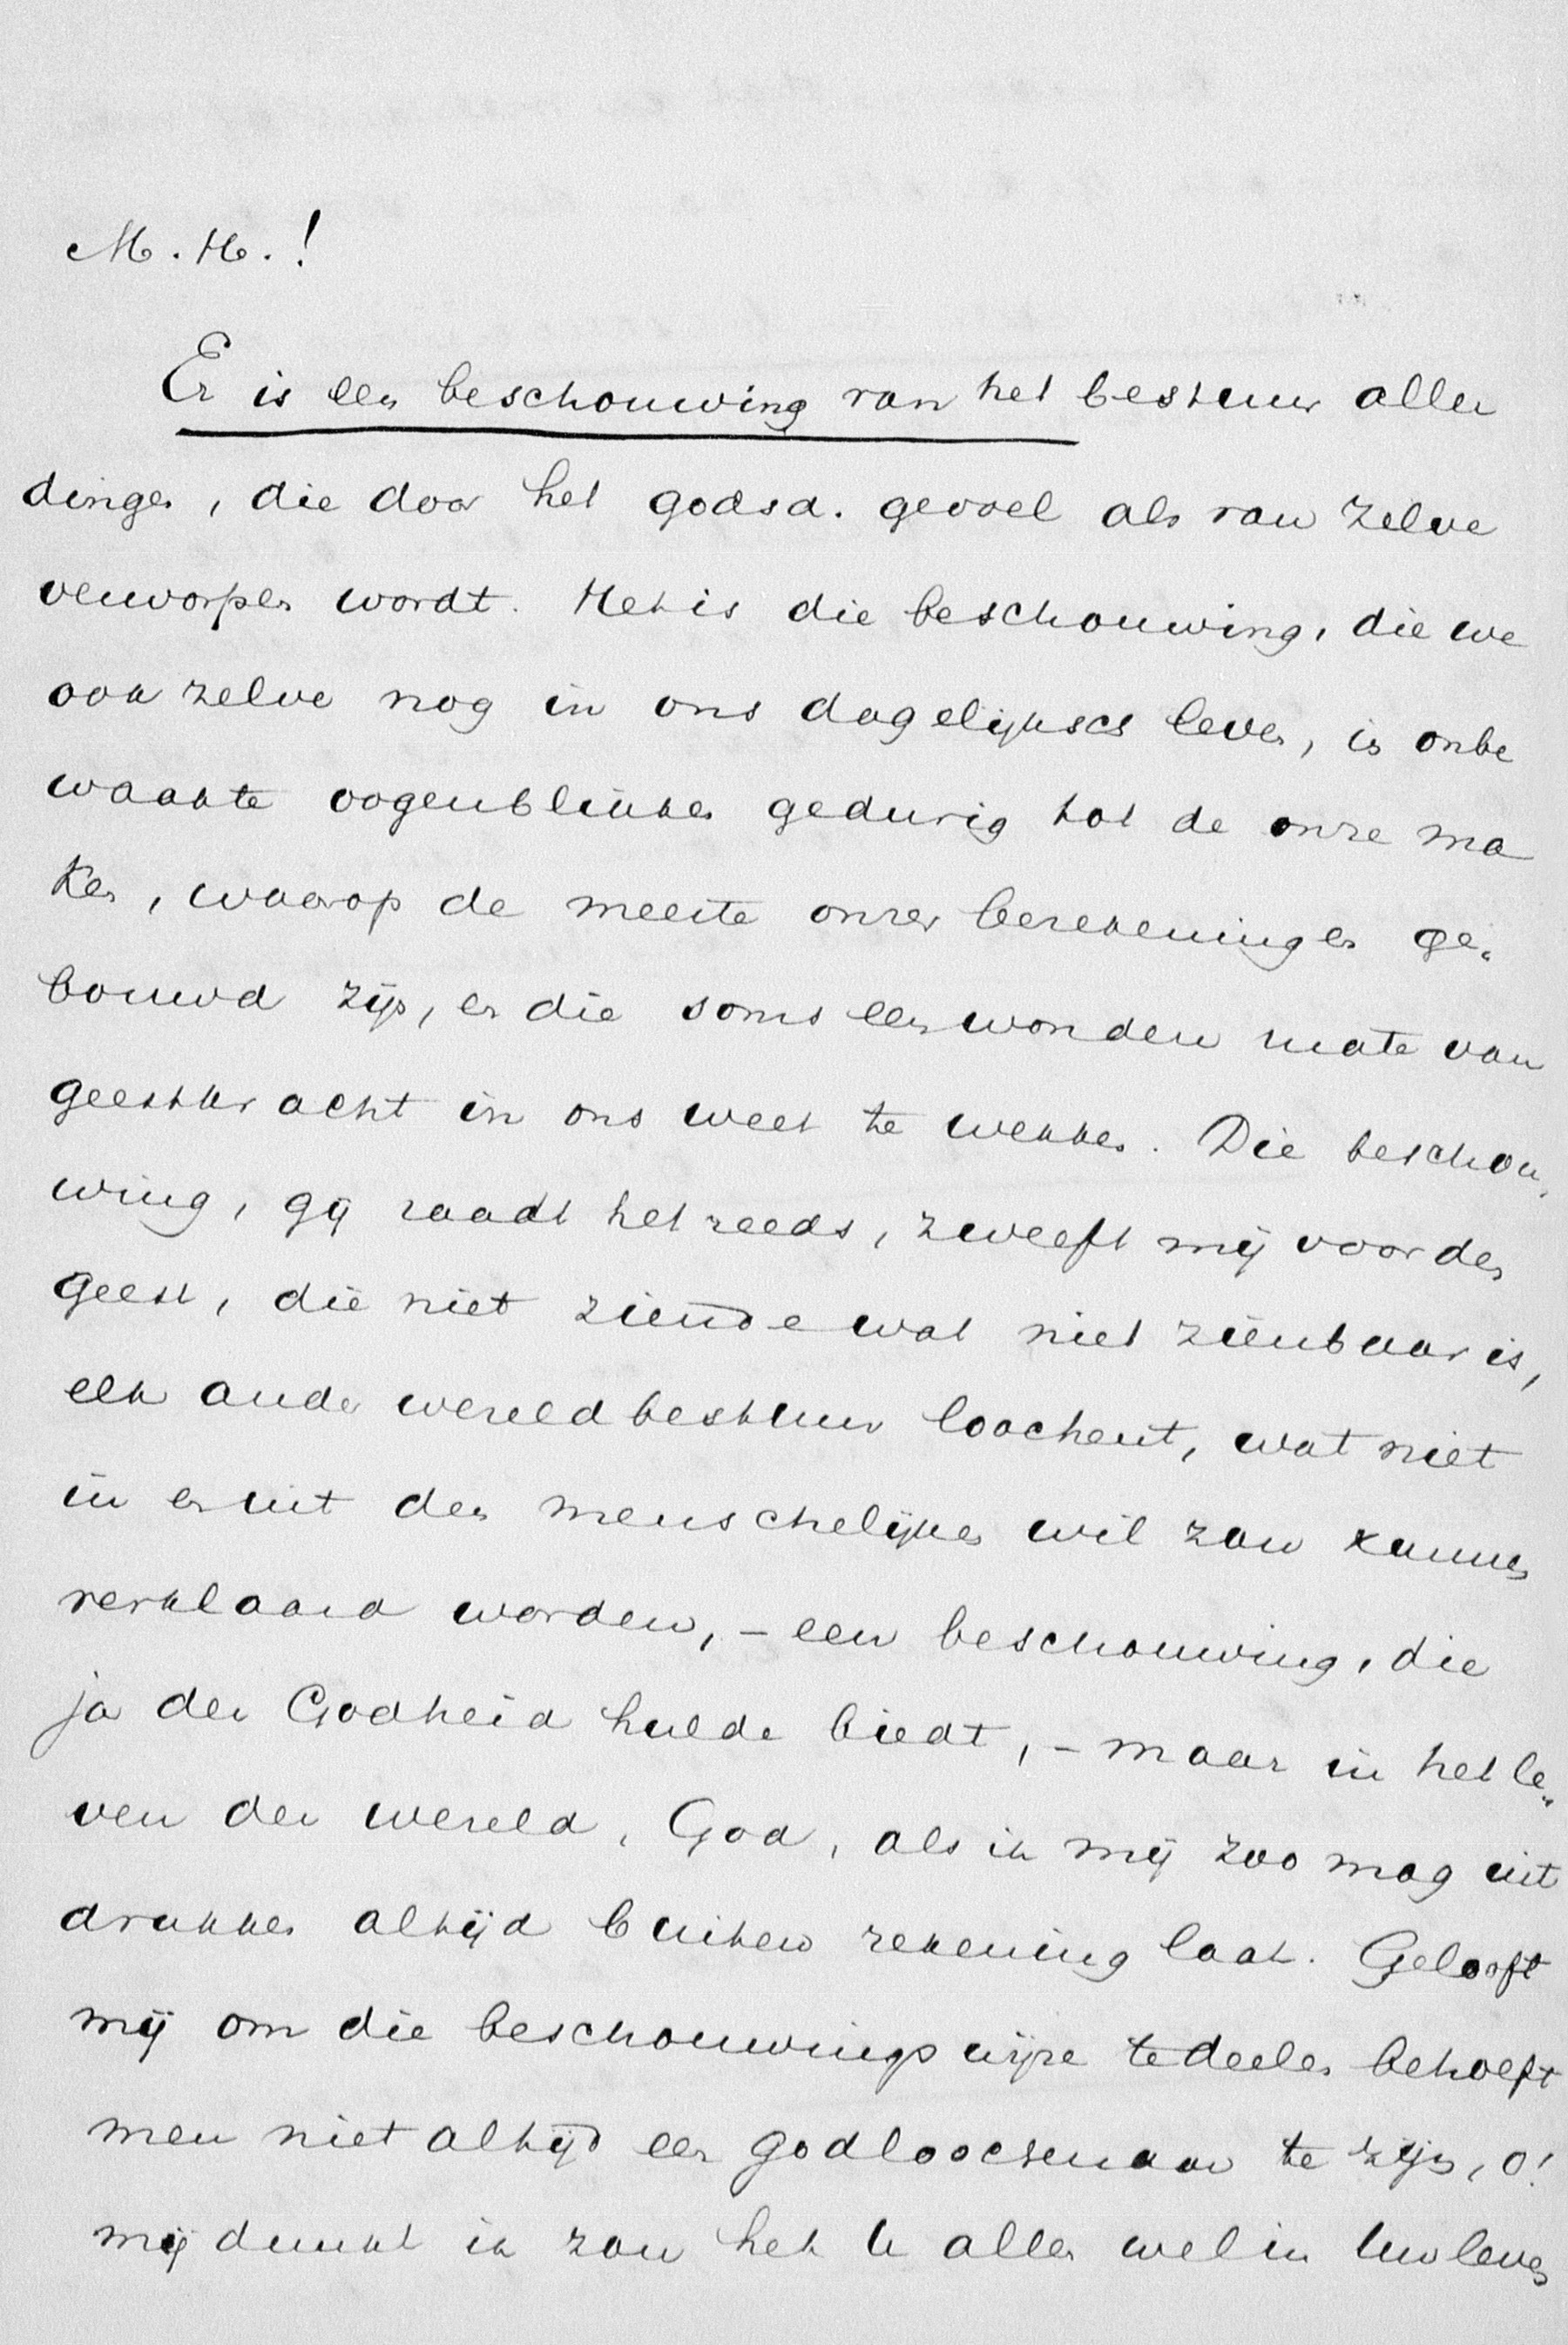 M. H.!
Er is een beschouwing van het bestuur aller
dingen, die door het godsd. gevoel als van zelve
verworpen wordt. Het is die beschouwing, die we
ook zelve nog in ons dagelijksch leven, in onbe
waakte oogenblikken gedurig tot de onze ma
ken, waarop de meeste onzer berekeningen ge„
bouwd zijn, en die soms een wondere mate van
geestkracht in ons weet te wekken. Die beschou„
wing, gij raadt het reeds, zweeft mij voor den
geest, die niet ziende wat niet zienbaar is,
elk ander wereldbestuur loochent, wat niet
in en uit den menschelijken wil zou kunnen
verklaard worden, – een beschouwing, die
ja der Godheid hulde biedt, – maar in het le„
ven der wereld, God, als ik mij zoo mag uit
drukken altijd buiten rekening laat. Gelooft
mij om die beschouwingswijze te deelen behoeft
men niet altijd een godloochenaar te zijn, o!
mij dunkt ik zou het U allen wel in Uw leven